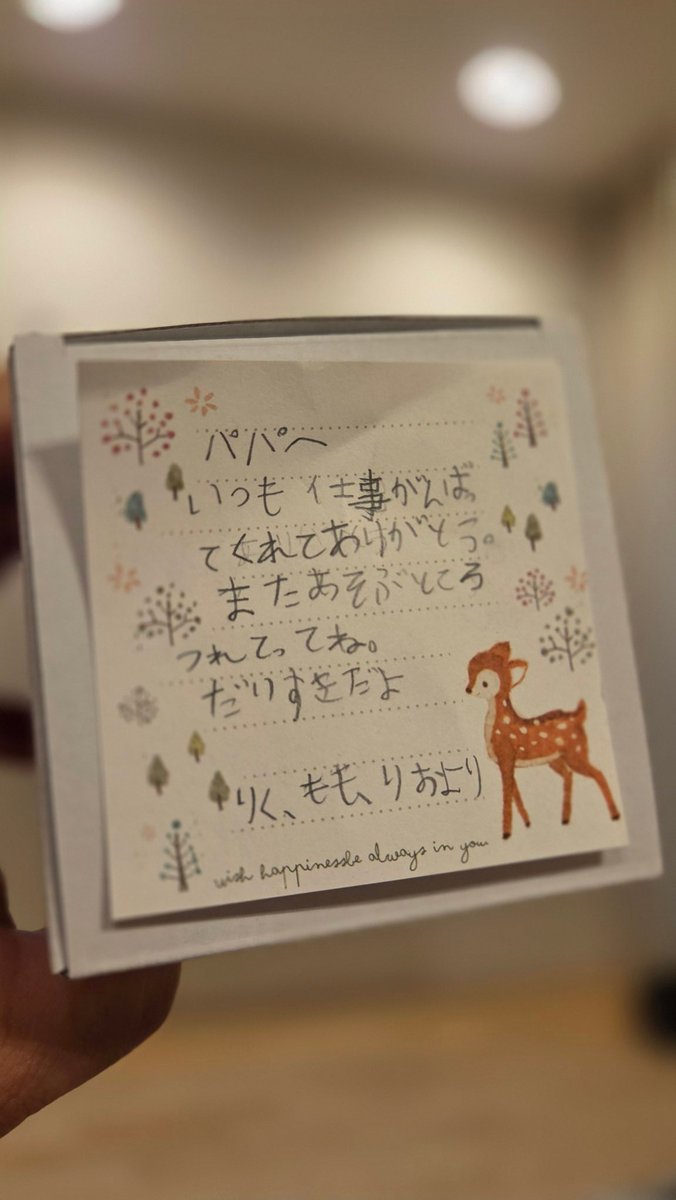 パパへ
いつも仕事がんばっ
てくれてありがとう。
またあそぶところ
つれてってね。
だりすきだよ
りく、もも、りおより
wish happinessbe always in you.